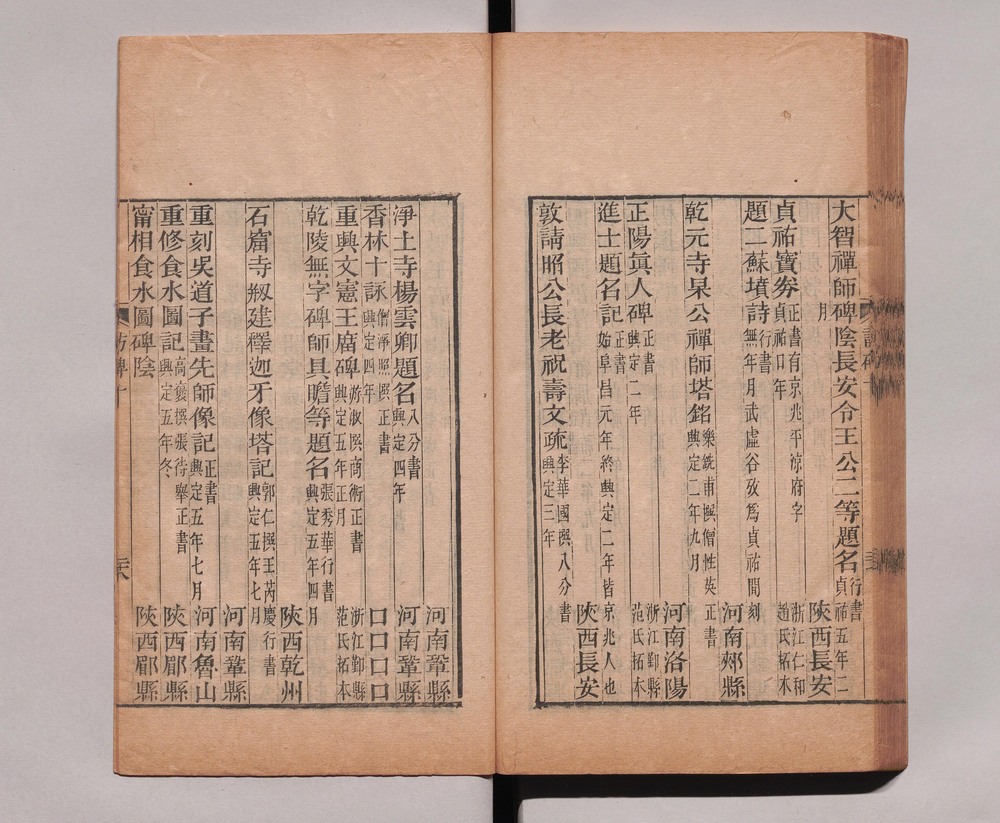 大智禪師碑陰長安令王公二等題名行書貞祐五年二月
陝西長安
貞祐寶券正書有京兆平涼府字貞祐□年
浙江仁和趙氏拓本
題二蘇墳詩行書無年月武虛谷攷爲貞祐間刻
河南郟縣
乾元寺杲公禪師塔銘欒詵甫撰僧性英正書興定二年九月
河南洛陽
正陽眞人碑正書興定二年
浙江鄞縣范氏拓本
進士題名記正書始阜昌元年終興定二年皆京兆人也
陝西長安
敦請昭公長老祝壽文疏李華國撰八分書興定三年
河南鞏縣
淨土寺楊雲卿題名八分書興定四年
河南鞏縣
香林十詠僧淨照撰正書興定四年
口口口口
重興文憲王廟碑游淑撰商術正書興定五年正月
浙江鄞縣范氏拓本
乾陵無字碑師具瞻等題名張秀華行書興定五年四月
陝西乾州
石窟寺剏建釋迦牙像塔記郭仁撰王芮慶行書興定五年七月
河南鞏縣
重刻吳道子畫先師像記正書興定五年七月
河南魯山
重修食水圖記高襄撰張待舉正書興定五年冬
陝西郿縣
甯相食水圖碑陰
陝西郿縣